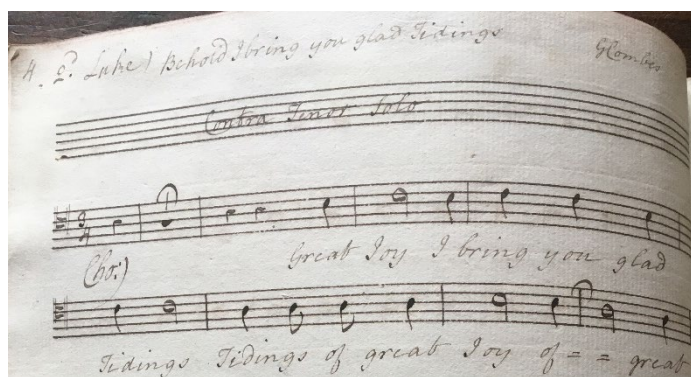 4. 2d. Luke) Behold I bring you glad Tidings
Contra Tenor Solo
3/4
Cho:)
Great Joy I bring you glad
Tidings Tidings of great Joy of = = great